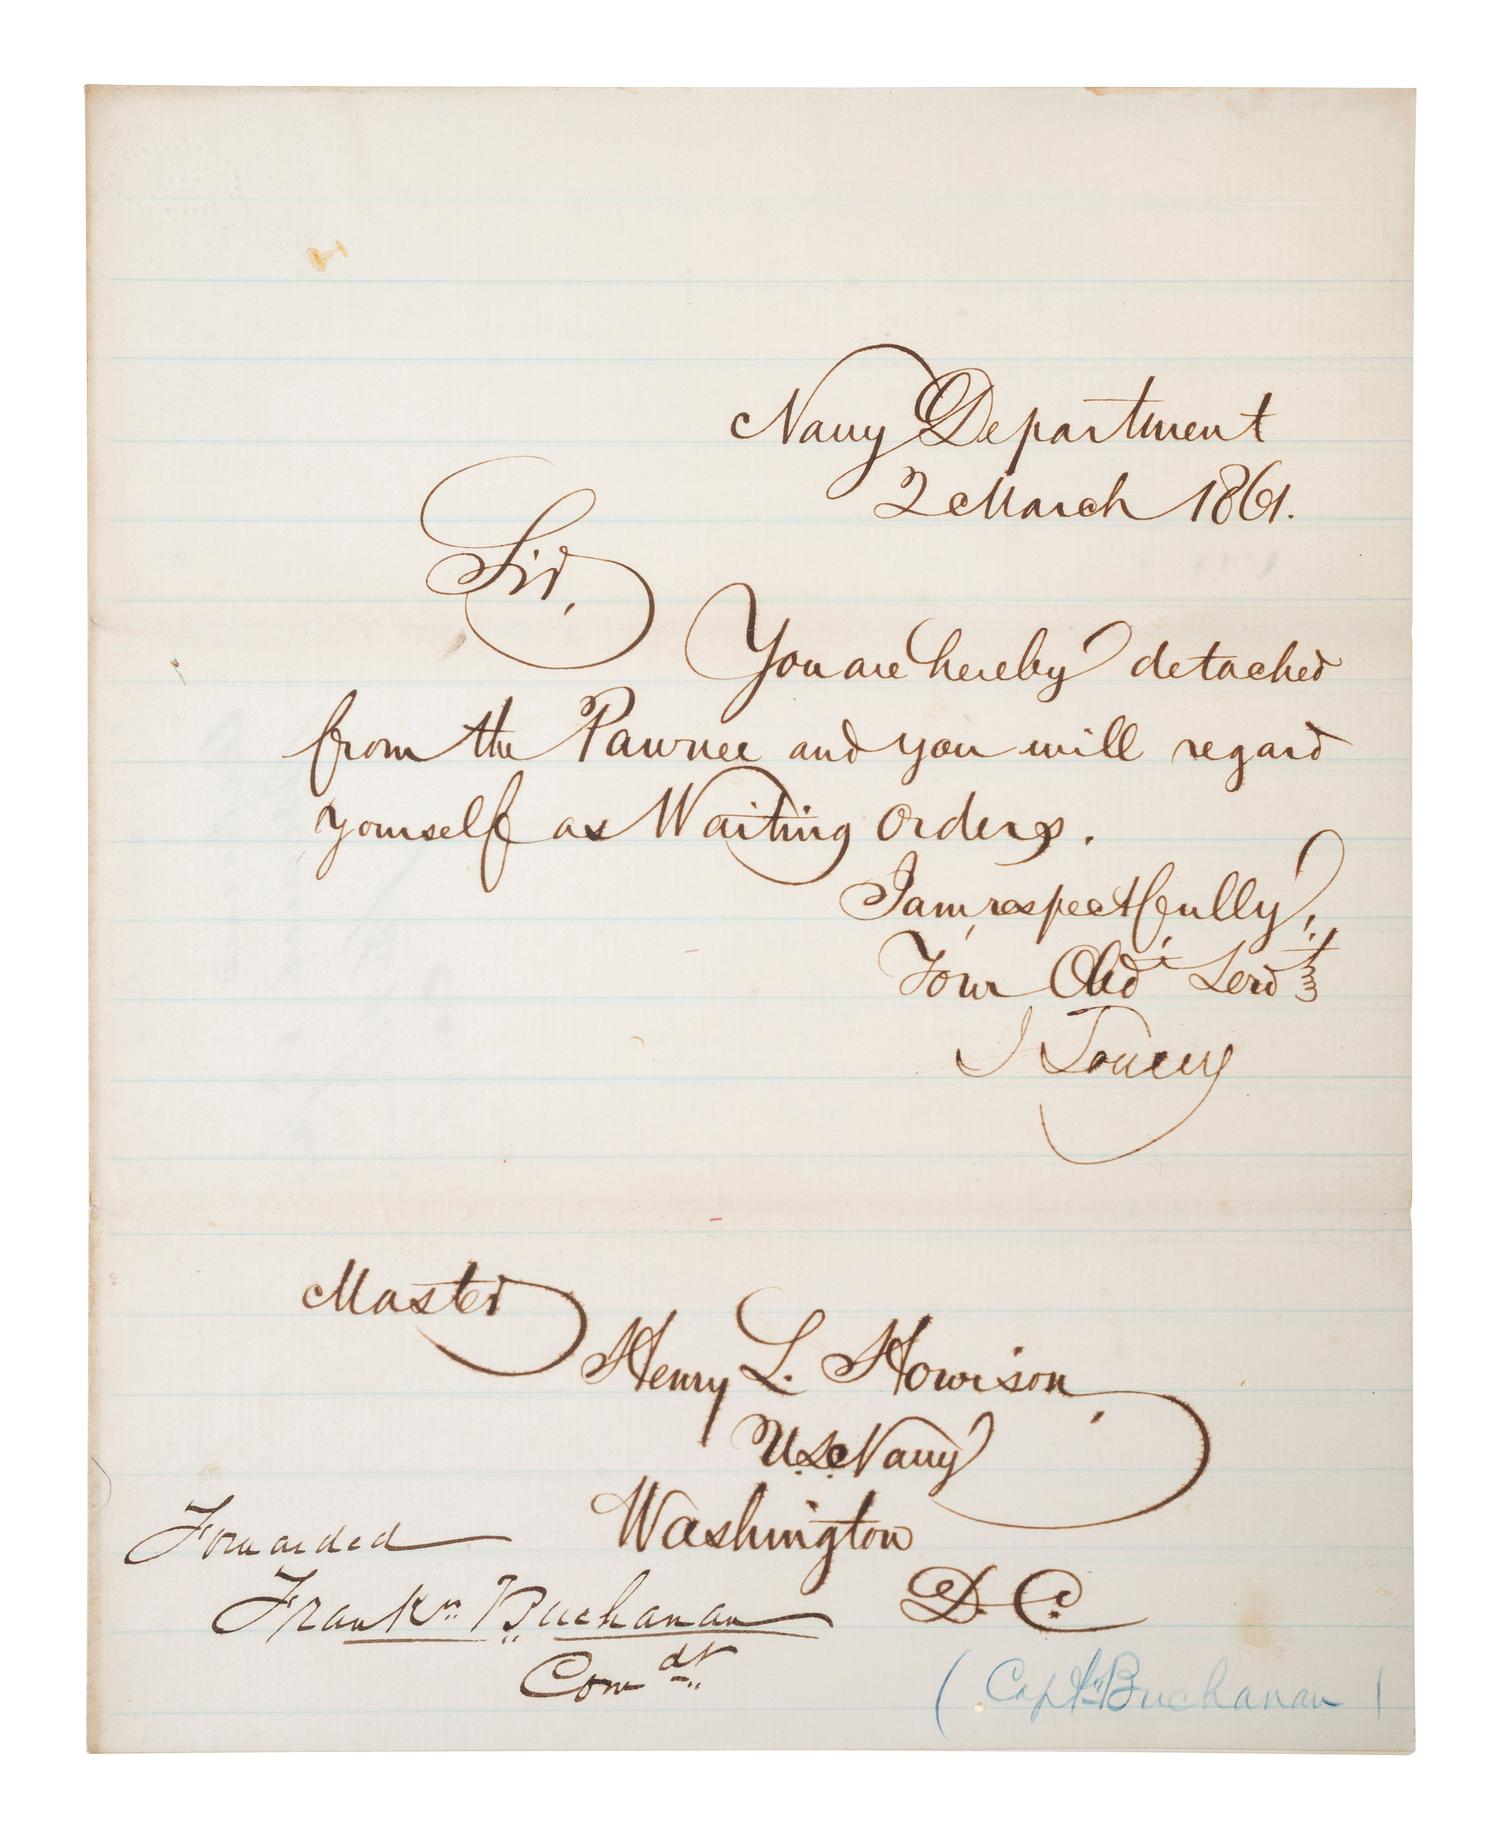 Navy Department
2 March 1861.
Sir,
You are hereby detached
from the Pawnee and you will regard
yourself as Waiting orders.
I am, respectfully,
Your Obdt Servt
I Toucey
Master
Henry L. Howison,
U.S. Navy
Washington
D.C.
Forwarded
Frankn Buchanan
Comdt
(Capt. Buchanan)